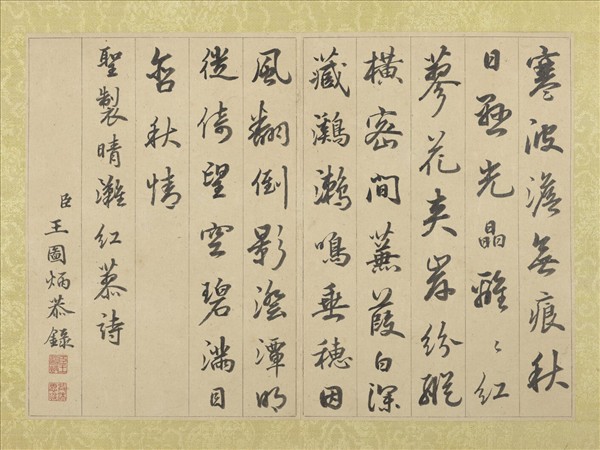 寒波澹無痕秋
日懸光晶離〻紅
蓼花夾岸紛縱
橫密間蒹葭白深
藏鸂鶒鳴垂穗因
風翻倒影澄潭明
徙倚望空碧滿目
皆秋情
聖製晴灘紅蓼詩
臣王圖炳恭錄